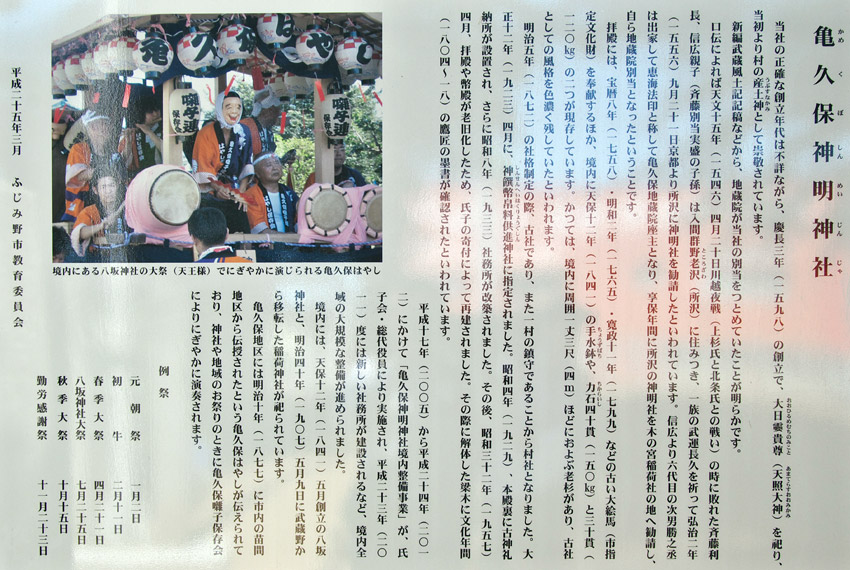 亀久保神明神社
かめくぼしんめいじんじゃ
当社の正確な創立年代は不詳ながら、慶長三年（一五九八）の創立で、大日孁貴尊（天照大神）を祀り、
おおひるめむちのみこと
あまてらすおおみかみ
当初より村の産土神として崇敬されています。
うぶすなかみ
新編武蔵風土記記稿などから、地蔵院が当社の別当をつとめていたことが明らかです。
口伝によれば天文十五年（一五四六）四月二十日川越夜戦（上杉氏と北条氏との戦い）の時に敗れた斉藤利
長、信広親子（斉藤別当実盛の子孫）は入間群野老沢（所沢）に住みつき、一族の武運長久を祈って弘治二年
ところざわ
（一五五六）九月二十一日京都より所沢に神明社を勧請したといわれています。信広より六代目の次男勝之丞
は出家して恵海法印と称して亀久保地蔵院座主となり、享保年間に所沢の神明社を木の宮稲荷社の地へ勧請し、
自ら地蔵院別当となったということです。
拝殿には、宝暦八年（一七五八）・明和二年（一七六五）・寛政十一年（一七九九）などの古い大絵馬（市指
定文化財）を奉献するほか、境内に天保十二年（一八四一）の手水鉢や、力石四十貫（一五〇㎏）と三十貫（
ちょうずばち
ちからいし
一二〇㎏）の二つが現存しています。かつては、境内に周囲一丈三尺（四ｍ）ほどにおよぶ老杉があり、古社
としての風格を色濃く残していたといわれます。
明治五年（一八七二）の社格制定の際、古社であり、また一村の鎮守であることから村社となりました。大
正十二年（一九二三）四月に、神饌幣帛料供進神社に指定されました。昭和四年（一九二九）、本殿裏に古神礼
納所が設置され、さらに昭和八年（一九三三）社務所が改築されました。その後、昭和三十二年（一九五七）
四月、拝殿や幣殿が老旧化したため、氏子の寄付によって再建されました。その際に解体した梁木に文化年間
（一八〇四〜一八）の鷹匠の墨書が確認されたといわれています。
平成十七年（二〇〇五）から平成二十四年（二〇一
二）にかけて「亀久保神明神社境内整備事業」が、氏
子会・総代役員により実施され、平成二十三年（二〇
一一）度には新しい社務所が建設されるなど、境内全
域の大規模な整備が進められました。
境内には、天保十二年（一八四一）五月創立の八坂
神社と、明治四十年（一九〇七）五月九日に武蔵野か
ら移転した稲荷神社が祀られています。
亀久保地区には明治十年（一八七七）に市内の苗間
地区から伝授されたという亀久保はやしが伝えられて
おり、神社や地域のお祭りのときに亀久保囃子保存会
によりにぎやかに演奏されます。
例祭
元朝祭　一月一日
初午　二月十一日
春季大祭　四月二十一日
八坂神社大祭　七月二十五日
秋季大祭　十月十五日
勤労感謝祭　十一月二十三日
亀久保はやし
囃子連
保存会
境内にある八坂神社の大祭（天王様）でにぎやかに演じられる亀久保はやし
平成二十五年三月　ふじみ野市教育委員会